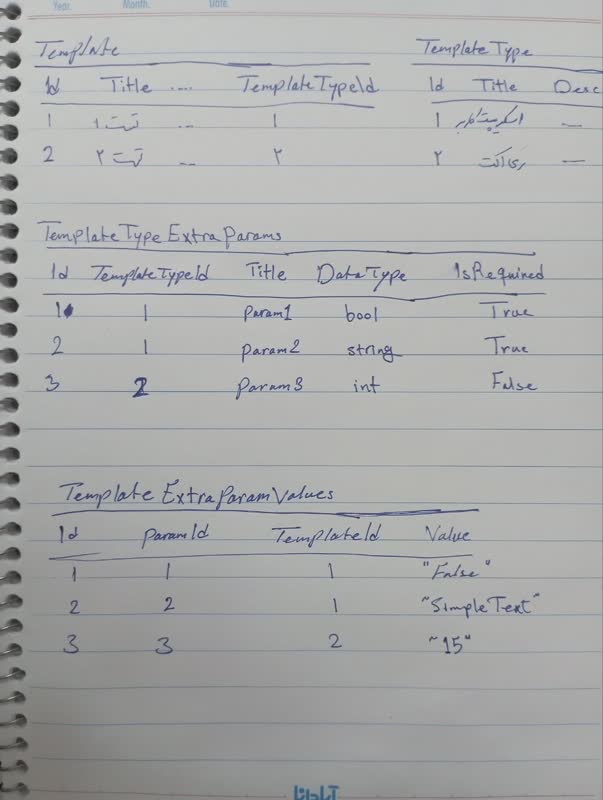 Year. Month. Date.
Template
Id Title .... TemplateTypeId
1 تست ۱ ... 1
2 تست ۲ ... ۲
TemplateType
Id Title Desc
1 —
۲ ری اکت —
TemplateTypeExtraParams
Id TemplateTypeId Title DataType IsRequired
1 1 Param1 bool True
2 1 Param2 string True
3 2 Param3 int False
TemplateExtraParamValues
Id ParamId TemplateId Value
1 1 1 "False"
2 2 1 "SimpleText"
3 3 2 "15"